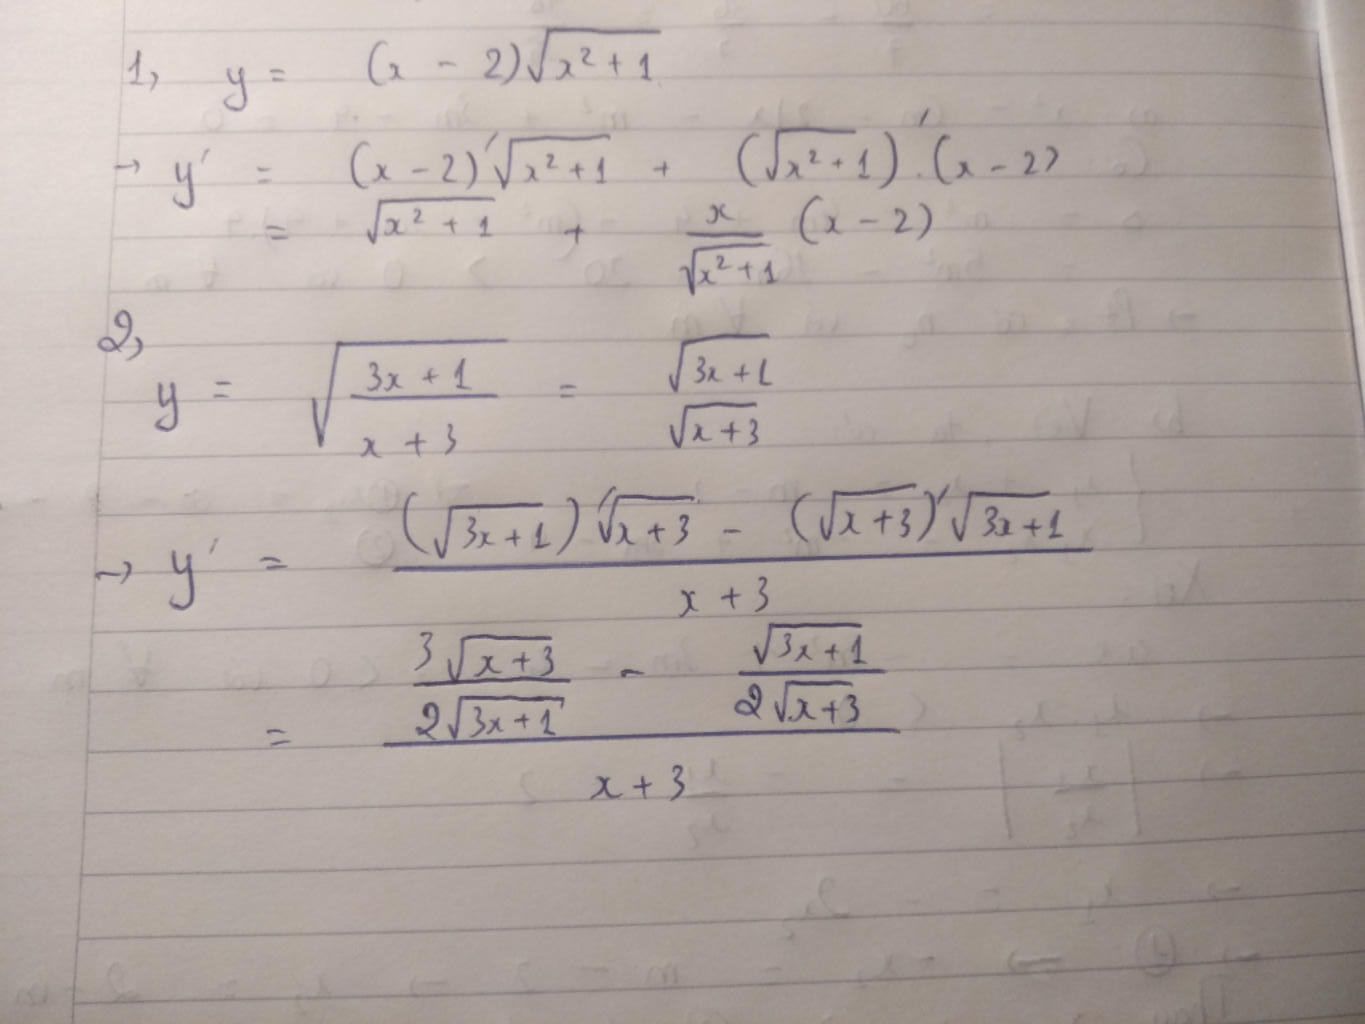 1, y = (x - 2)√(x² + 1)
→ y' = (x - 2)'√(x² + 1) + (√(x² + 1))'.(x - 2)
= √(x² + 1) + x/√(x² + 1) (x - 2)
2,
y = √((3x + 1)/(x + 3)) = √(3x + 1)/√(x + 3)
→ y' = ((√(3x + 1))'√(x + 3) - (√(x + 3))'√(3x + 1))/(x + 3)
= (3√(x + 3)/(2√(3x + 1)) - √(3x + 1)/(2√(x + 3)))/(x + 3)